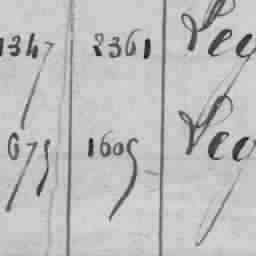 1347 2361 Leg
675 1605 Leg